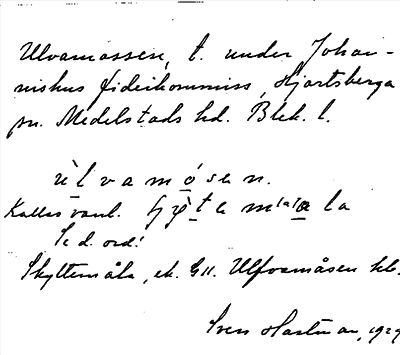 Ulvamossen, t. under Johan-
nishus fideikommiss, Hjortsberga
sn. Medelstads hd. Blek. l.
ù l v a m ó s e n.
Kallas vanl.
Se d. ord!
Skyttemåla, ek. Gll. Ulfvamåsen
Sven Hartman, 1929